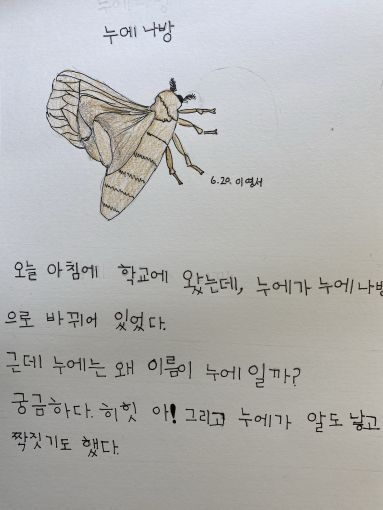 누에 나방
6.20. 이열서
오늘 아침에 학교에 왔는데, 누에가 누에나방
으로 바뀌어 있었다.
근데 누에는 왜 이름이 누에 일까?
궁금하다. 히힛 아! 그리고 누에가 알도 낳고
짝짓기도 했다.